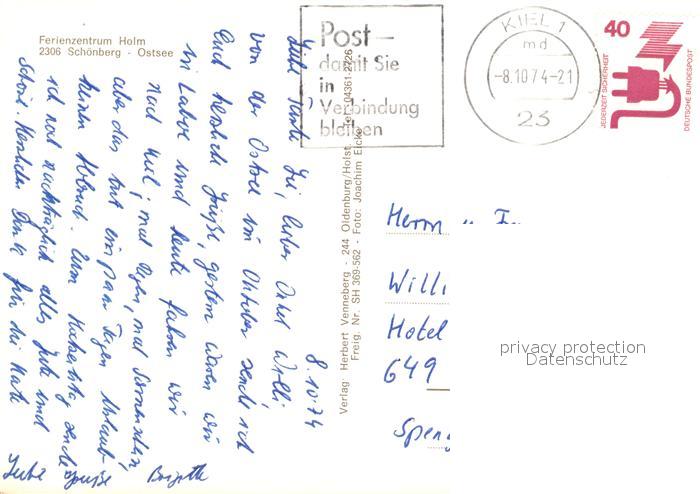 Ferienzentrum Holm
2306 Schönberg - Ostsee
Post -
damit Sie
in
Verbindung
bleiben
KIEL 1
md
-8.10.74-21
23
40
JEDERZEIT SICHERHEIT
DEUTSCHE BUNDESPOST
8.10.74
Liebe Tante , lieber Onkel Willi,
von der Ostsee im Oktober sende ich
Euch herzliche Grüße, gestern waren wir
in Laboe und heute fahren wir
nach Kiel, mal Regen, mal Sonnenschein,
aber das tut ein paar Tagen Urlaub
keinen Abbruch. Zum sende
ich noch nachträglich alles Gute und
Schöne. Herzlichen Dank für die Karte
Liebe Grüße Brigitte
Verlag: Herbert Venneberg - 244 Oldenburg/Holst. Tel. 04361-2726
Freig. Nr. SH 369-562 - Foto: Joachim Eicke
Herrn u.
Willi
Hotel
649
privacy protection
Datenschutz